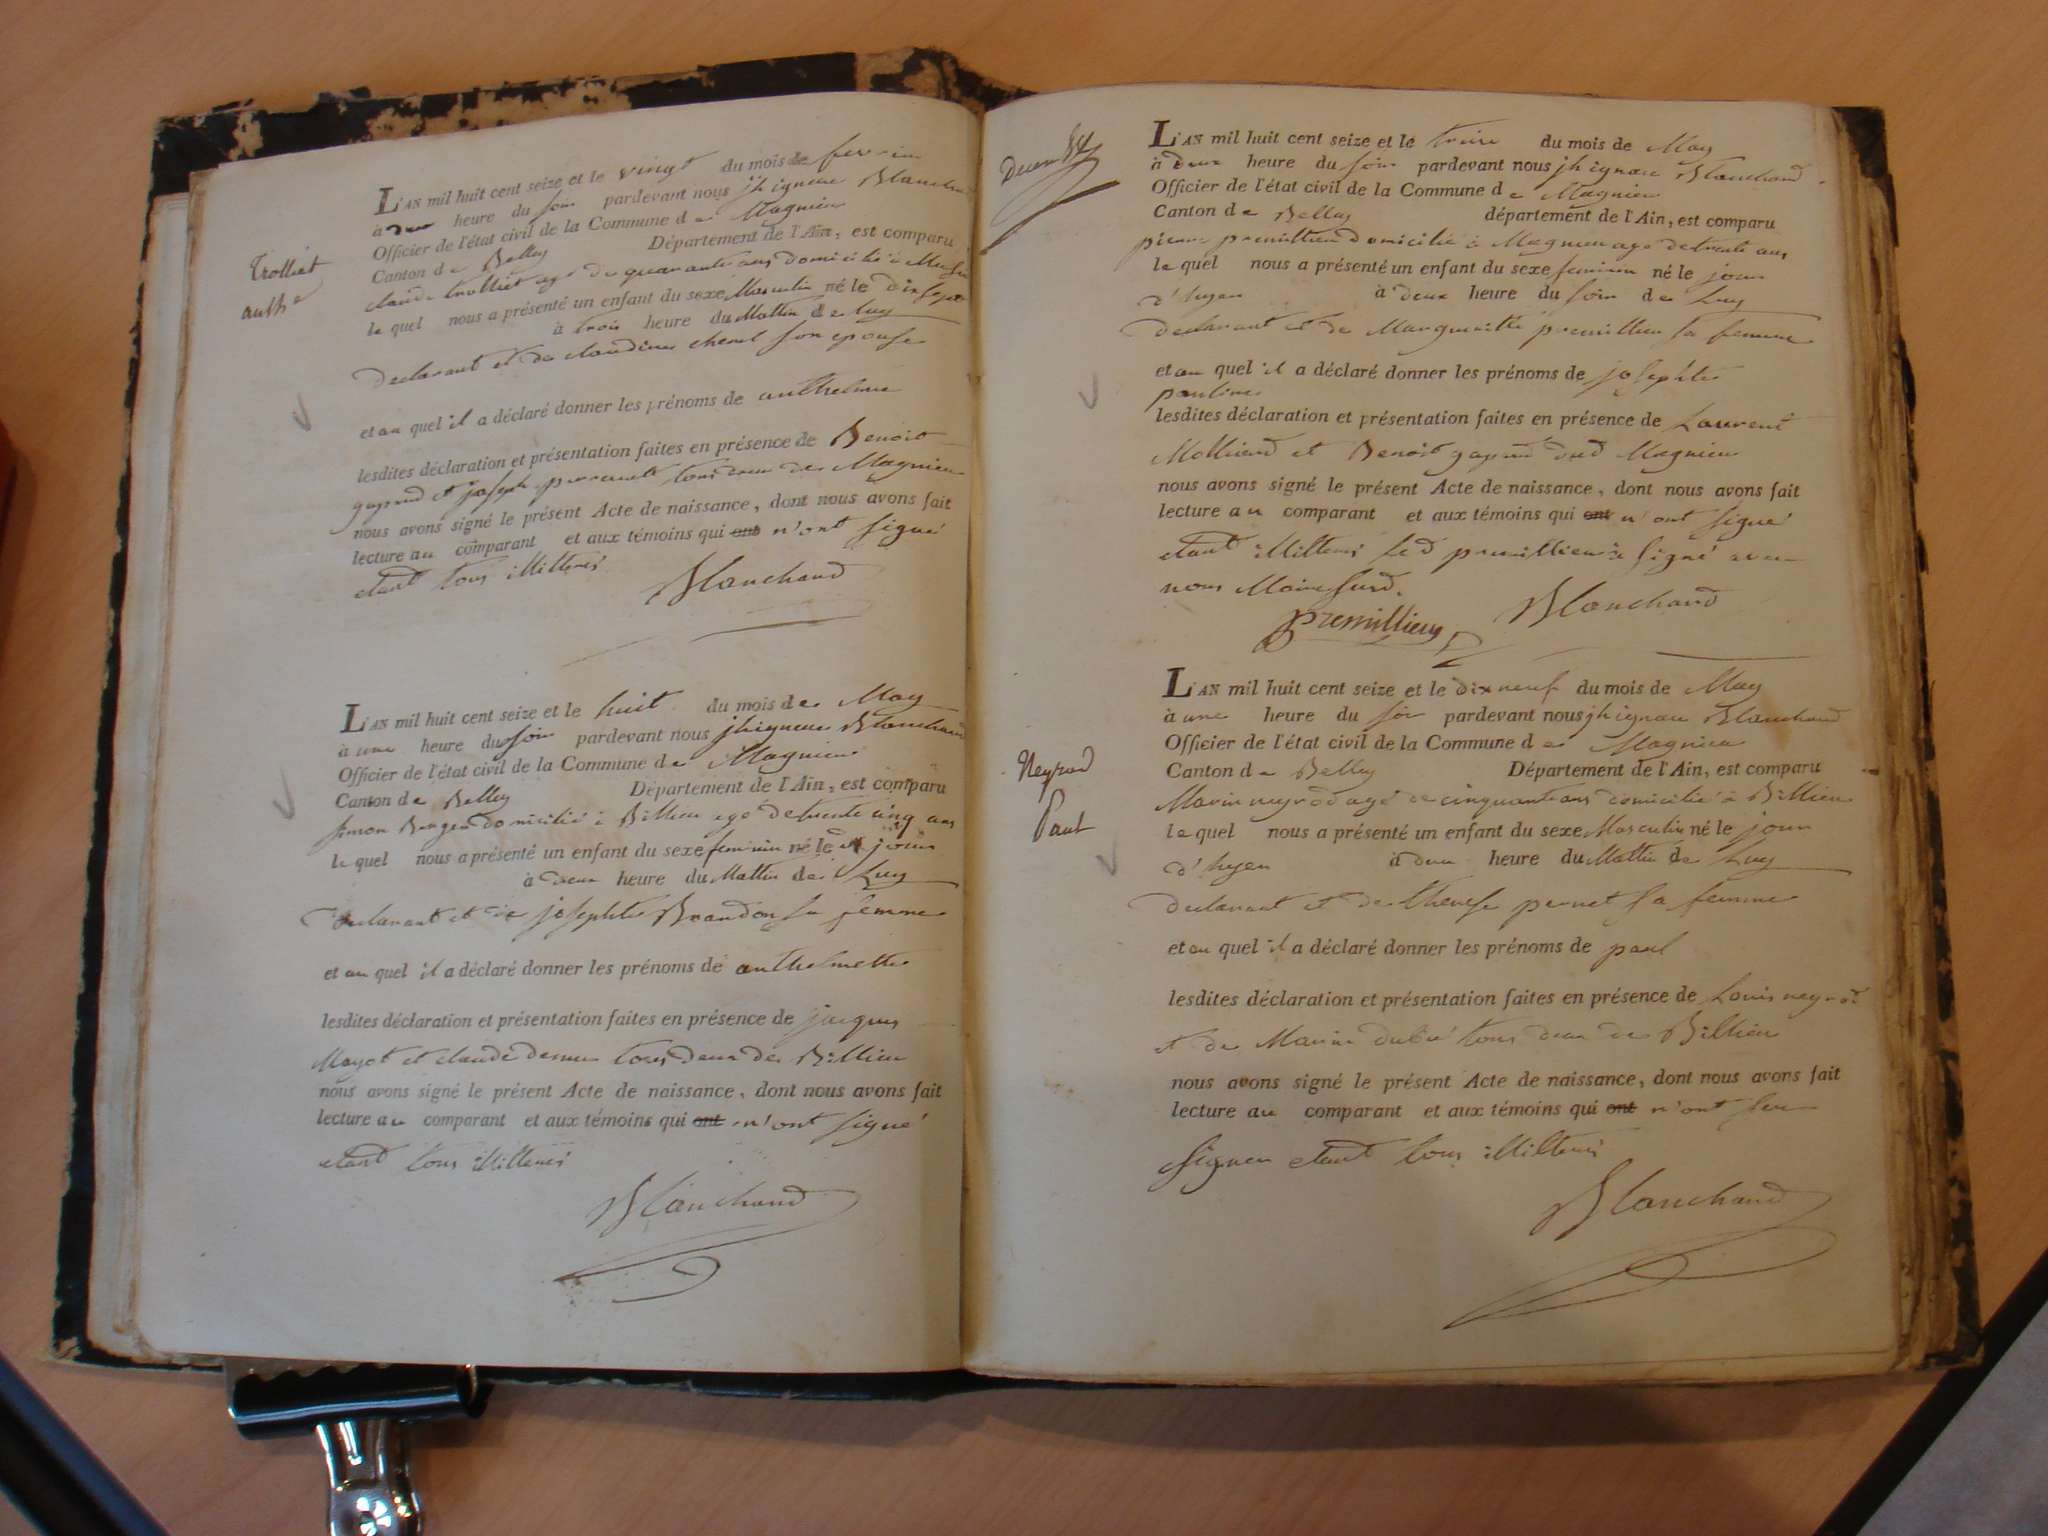 Trolliet
anth^e
L'AN mil huit cent seize et le vingt du mois de fevrier
à deux heure du soir pardevant nous jh ignace Blanchard
Officier de l'état civil de la Commune de Magnieu
Canton de Belley Département de l'Ain, est comparu
claude trolliet agé de quarante ans domicilié à
le quel nous a présenté un enfant du sexe Masculin né le dixsept
à trois heure du Mattin de luy
declarant et de claudine son epouse
et au quel il a déclaré donner les prénoms de anthelme
lesdites déclaration et présentation faites en présence de Benoit
gaprud et joseph tous deux de Magnieu
nous avons signé le présent Acte de naissance, dont nous avons fait
lecture au comparant et aux témoins qui ont n'ont signé
etant tous illiteres
Blanchard
L'AN mil huit cent seize et le huit du mois de May
à une heure du soir pardevant nous jh ignace Blanchard
Officier de l'état civil de la Commune de Magnieu
Canton de Belley Département de l'Ain, est comparu
simon Berger domicilié à Billieu agé de trente cinq ans
le quel nous a présenté un enfant du sexe feminin né le jour
à deux heure du Mattin de Luy
declarant et de josephte Brandon sa femme
et au quel il a déclaré donner les prénoms de anthelmette
lesdites déclaration et présentation faites en présence de jacques
Mayot et claude tous deux de Billieu
nous avons signé le présent Acte de naissance, dont nous avons fait
lecture au comparant et aux témoins qui ont n'ont signé
etant tous illiteres
Blanchard
L'AN mil huit cent seize et le treize du mois de May
à deux heure du soir pardevant nous jh ignace Blanchard
Officier de l'état civil de la Commune de Magnieu
Canton de Belley département de l'Ain, est comparu
pierre premillieu domicilié à Magnieu agé de trente ans
le quel nous a présenté un enfant du sexe feminin né le jour
d'hyer à deux heure du soir de Luy
declarant et de Margueritte premillieu sa femme
et au quel il a déclaré donner les prénoms de josephte
pauline
lesdites déclaration et présentation faites en présence de Laurent
Mollierd et Benoit gaprud dud Magnieu
nous avons signé le présent Acte de naissance, dont nous avons fait
lecture au comparant et aux témoins qui ont n'ont signé
etant illiteres led premillieu a signé avec
nous Maire susd.
premillieu Blanchard
Neyrod
Paul
L'AN mil huit cent seize et le dix neuf du mois de May
à une heure du soir pardevant nous jh ignace Blanchard
Officier de l'état civil de la Commune de Magnieu
Canton de Belley Département de l'Ain, est comparu
Marin neyrod agé de cinquante ans domicilié à Billieu
le quel nous a présenté un enfant du sexe Masculin né le jour
d'hyer à deux heure du Mattin de Luy
declarant et de therese pernet sa femme
et au quel il a déclaré donner les prénoms de paul
lesdites déclaration et présentation faites en présence de Louis neyrod
et de Marin dubié tous deux de Billieu
nous avons signé le présent Acte de naissance, dont nous avons fait
lecture au comparant et aux témoins qui ont n'ont seu
signer etant tous illiteres
Blanchard